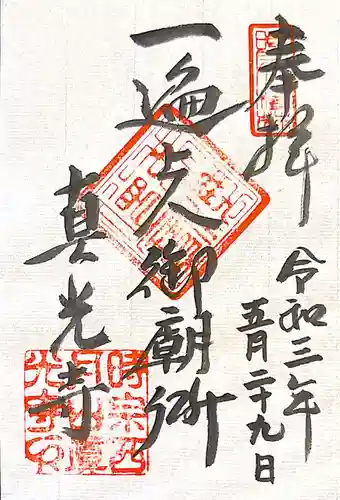 奉拝
令和三年
五月二十九日
一遍上人御廟所
真光寺
時宗西
月山
光寺印